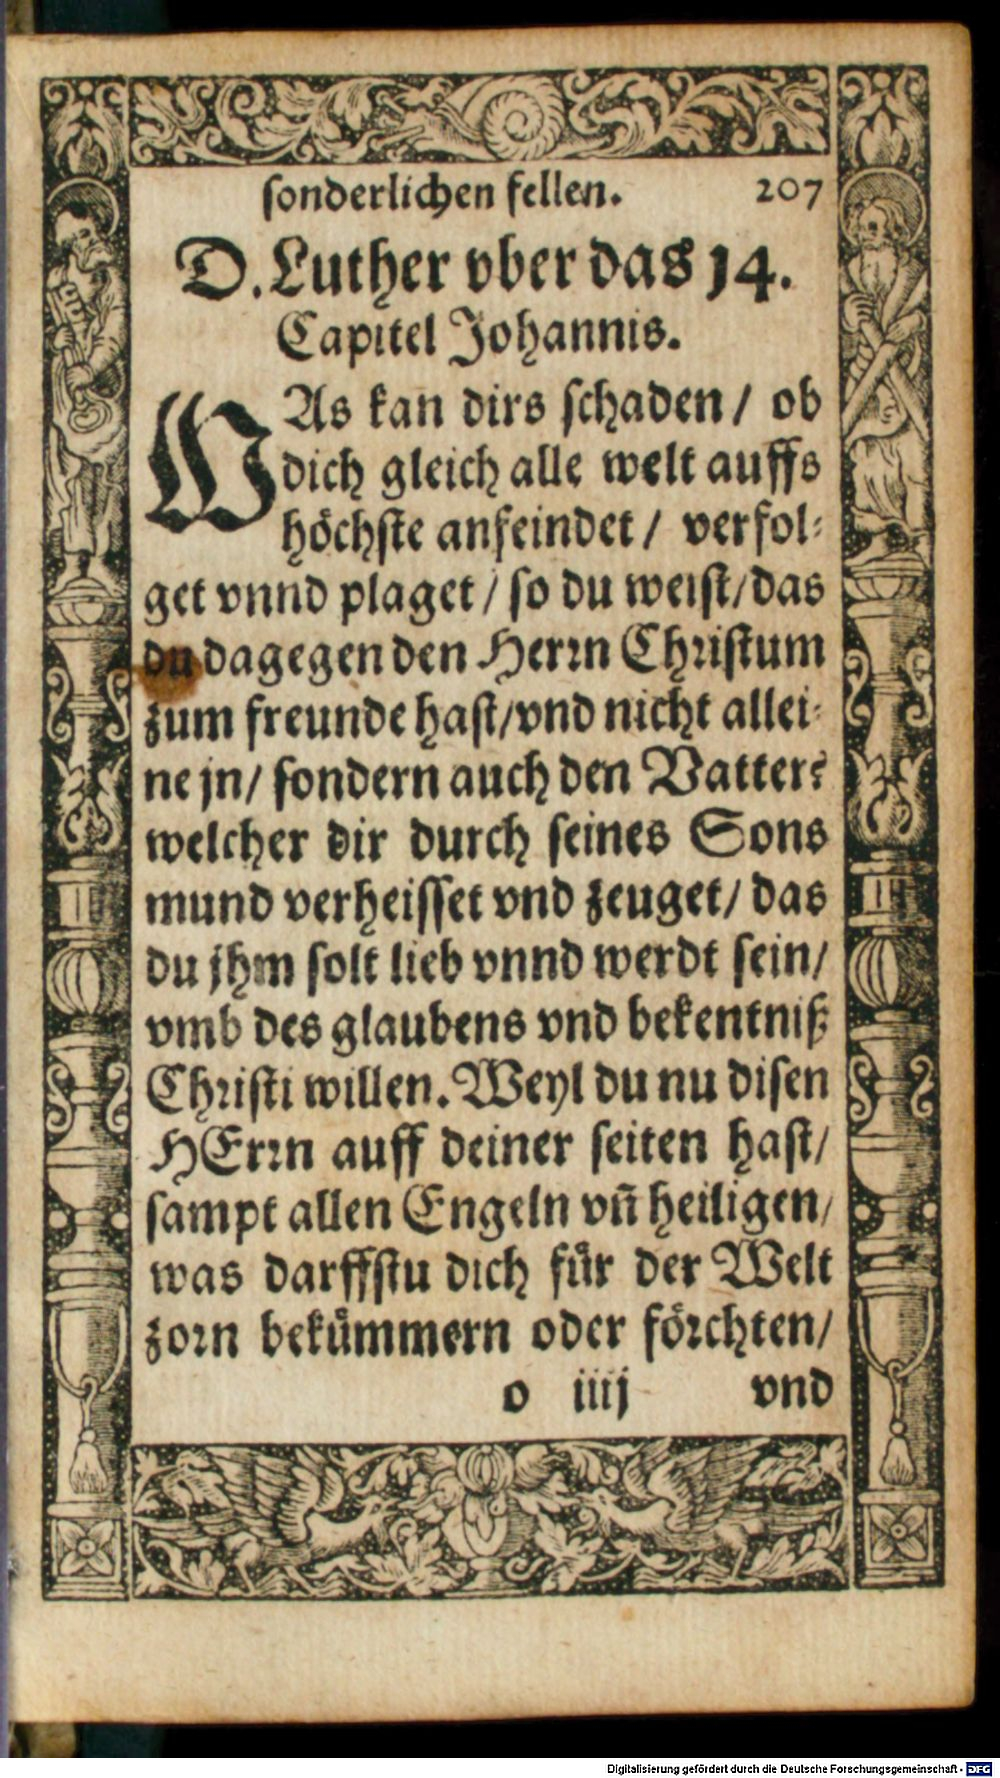 sonderlichen fellen. 207
D. Luther vber das 14.
Capitel Johannis.
WAs kan dirs schaden / ob
dich gleich alle welt auffs
höchste anfeindet / verfol-
get vnnd plaget / so du weist / das
du dagegen den Herrn Christum
zum freunde hast / vnd nicht allei-
ne jn / sondern auch den Vatter?
welcher dir durch seines Sons
mund verheisset vnd zeuget / das
du jhm solt lieb vnnd werdt sein /
vmb des glaubens vnd bekentniß
Christi willen. Weyl du nu disen
HErrn auff deiner seiten hast /
sampt allen Engeln vñ heiligen /
was darffstu dich für der Welt
zorn bekümmern oder förchten /
o iiij vnd
Digitalisierung gefördert durch die Deutsche Forschungsgemeinschaft - DFG